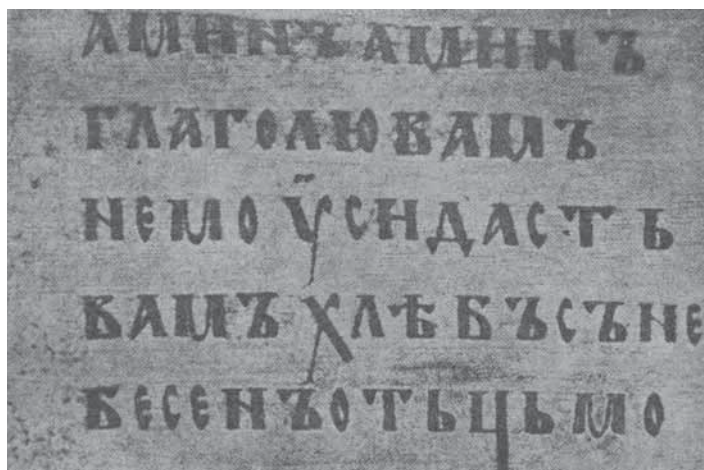 АМИНЪАМИНЪ
ГЛАГОЛЮВАМЪ
НЕМОѴ̈СИДАСТЬ
ВАМЪХЛѢБЪСЪНЕ
БЕСЕНЪОТЬЦЬМО